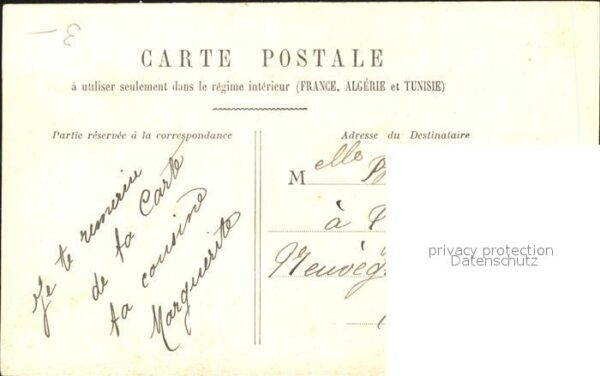 3
CARTE POSTALE
à utiliser seulement dans le régime intérieur (FRANCE, ALGÉRIE et TUNISIE)
Partie réservée à la correspondance
Je te remercie
de ta Carte
ta cousine
Marguerite
Adresse du Destinataire
Melle
à
privacy protection
Datenschutz